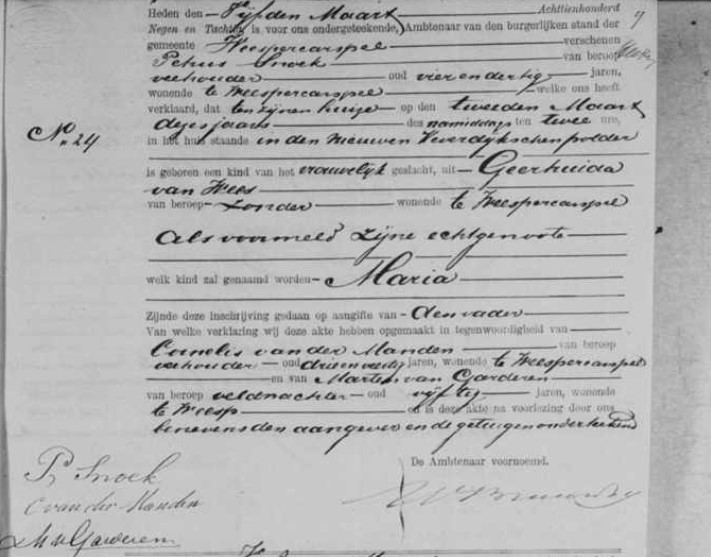 Heden den Vijfden Maart Achttienhonderd
Negen en Tachtig is voor ons ondergeteekende, Ambtenaar van den burgerlijken stand der
gemeente Weespercarspel verschenen
Petrus Snoek van beroep
veehouder oud vier en dertig jaren,
wonende te Weespercarspel welke ons heeft
verklaard, dat ten zijnen huize op den tweeden Maart
dezes jaars des namiddags ten twee ure,
in het huis staande in den Nieuwen Keverdijkschen polder
No. 24
is geboren een kind van het vrouwelijk geslacht, uit Geertruida
van Wees
van beroep zonder wonende te Weespercarspel
als voormeld zijne echtgenoote
welk kind zal genaamd worden Maria
Zijnde deze inschrijving gedaan op aangifte van den vader
Van welke verklaring wij deze akte hebben opgemaakt in tegenwoordigheid van
Cornelis van der Manden van beroep
veehouder oud drieenveertig jaren, wonende te Weespercarspel
en van Marten van Garderen
van beroep veldwachter oud vijftig jaren, wonende
te Weesp en is deze akte na voorlezing door ons
benevens den aangever en de getuigen onderteekend
De Ambtenaar voornoemd.
P. Snoek
C van der Manden
M v Garderen